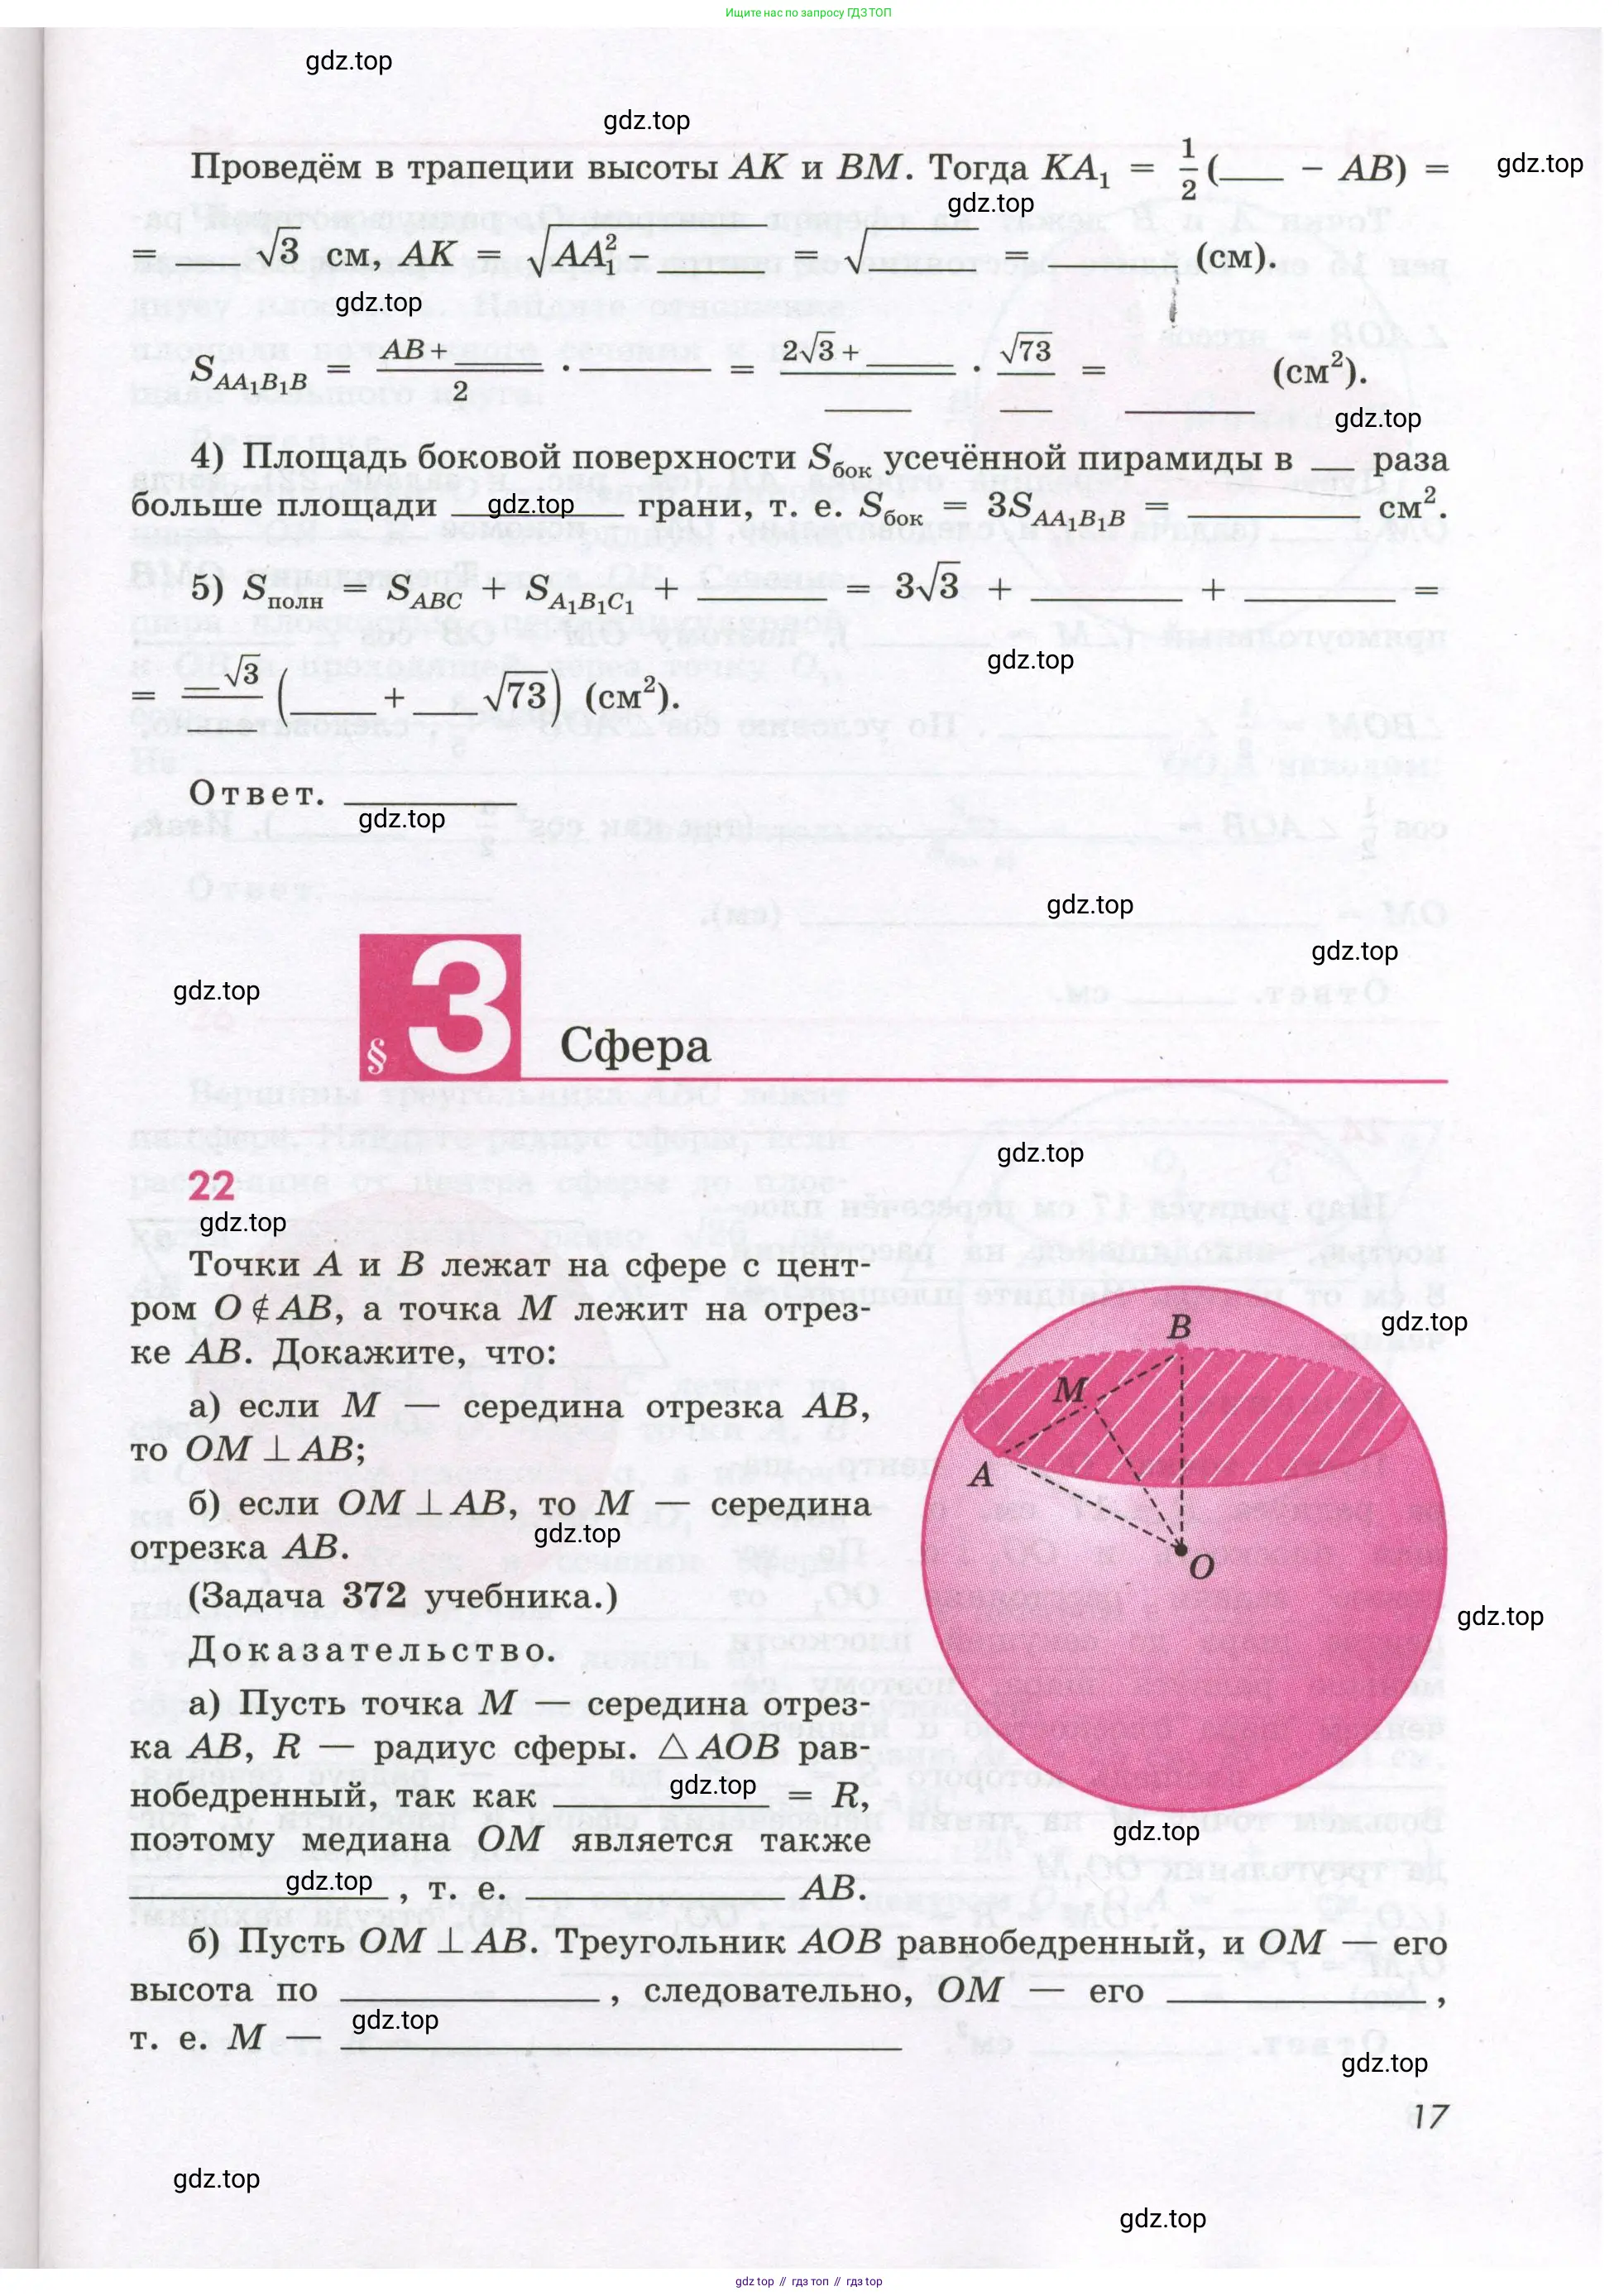 Ищите нас по запросу ГДЗ ТОП
gdz.top
gdz.top
Проведём в трапеции высоты AK и BM. Тогда KA₁ = 1/2(___ − AB) =
gdz.top
gdz.top
= ___ √3 см, AK = √(AA₁² − ___) = √___ = ___ (см).
gdz.top
S_{AA₁B₁B} = (AB + ___)/2 · ___ = (2√3 + ___)/___ · √73/___ = ___ (см²).
gdz.top
4) Площадь боковой поверхности Sбок усечённой пирамиды в __ раза
больше площади ___ грани, т. е. Sбок = 3S_{AA₁B₁B} = ___ см².
gdz.top
5) Sполн = S_{ABC} + S_{A₁B₁C₁} + ___ = 3√3 + ___ + ___ =
gdz.top
= __√3/___ (___ + ___√73) (см²).
Ответ. ___
gdz.top
gdz.top
gdz.top
gdz.top
§ 3 Сфера
gdz.top
22
gdz.top
Точки A и B лежат на сфере с цент-
ром O ∉ AB, а точка M лежит на отрез-
ке AB. Докажите, что:
а) если M — середина отрезка AB,
то OM ⊥ AB;
б) если OM ⊥ AB, то M — середина
отрезка AB.
gdz.top
(Задача 372 учебника.)
Доказательство.
а) Пусть точка M — середина отрез-
ка AB, R — радиус сферы. △AOB рав-
нобедренный, так как ___ = R,
gdz.top
поэтому медиана OM является также
___, т. е. ___ AB.
gdz.top
B
gdz.top
M
A
O
gdz.top
gdz.top
б) Пусть OM ⊥ AB. Треугольник AOB равнобедренный, и OM — его
высота по ___, следовательно, OM — его ___,
gdz.top
т. е. M — ___
gdz.top
17
gdz.top
gdz.top
gdz top // гдз топ // гдз top